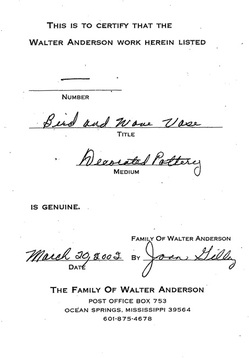 THIS IS TO CERTIFY THAT THE
WALTER ANDERSON WORK HEREIN LISTED
—
NUMBER
Bird and Wave Vase
TITLE
Decorated Pottery
MEDIUM
IS GENUINE.
FAMILY OF WALTER ANDERSON
March 29, 2002 BY Joan Gilley
DATE
THE FAMILY OF WALTER ANDERSON
POST OFFICE BOX 753
OCEAN SPRINGS, MISSISSIPPI 39564
601-875-4678